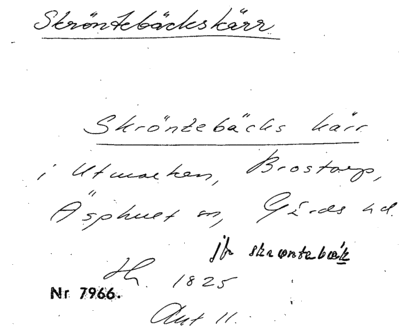 Skröntebäckskärr
Skröntebäcks kärr
i Utmarken, Brostorp,
Äsphult sn, Gärds hd.
jfr skrontebäck
1825
Nr 7966.
Akt 11.